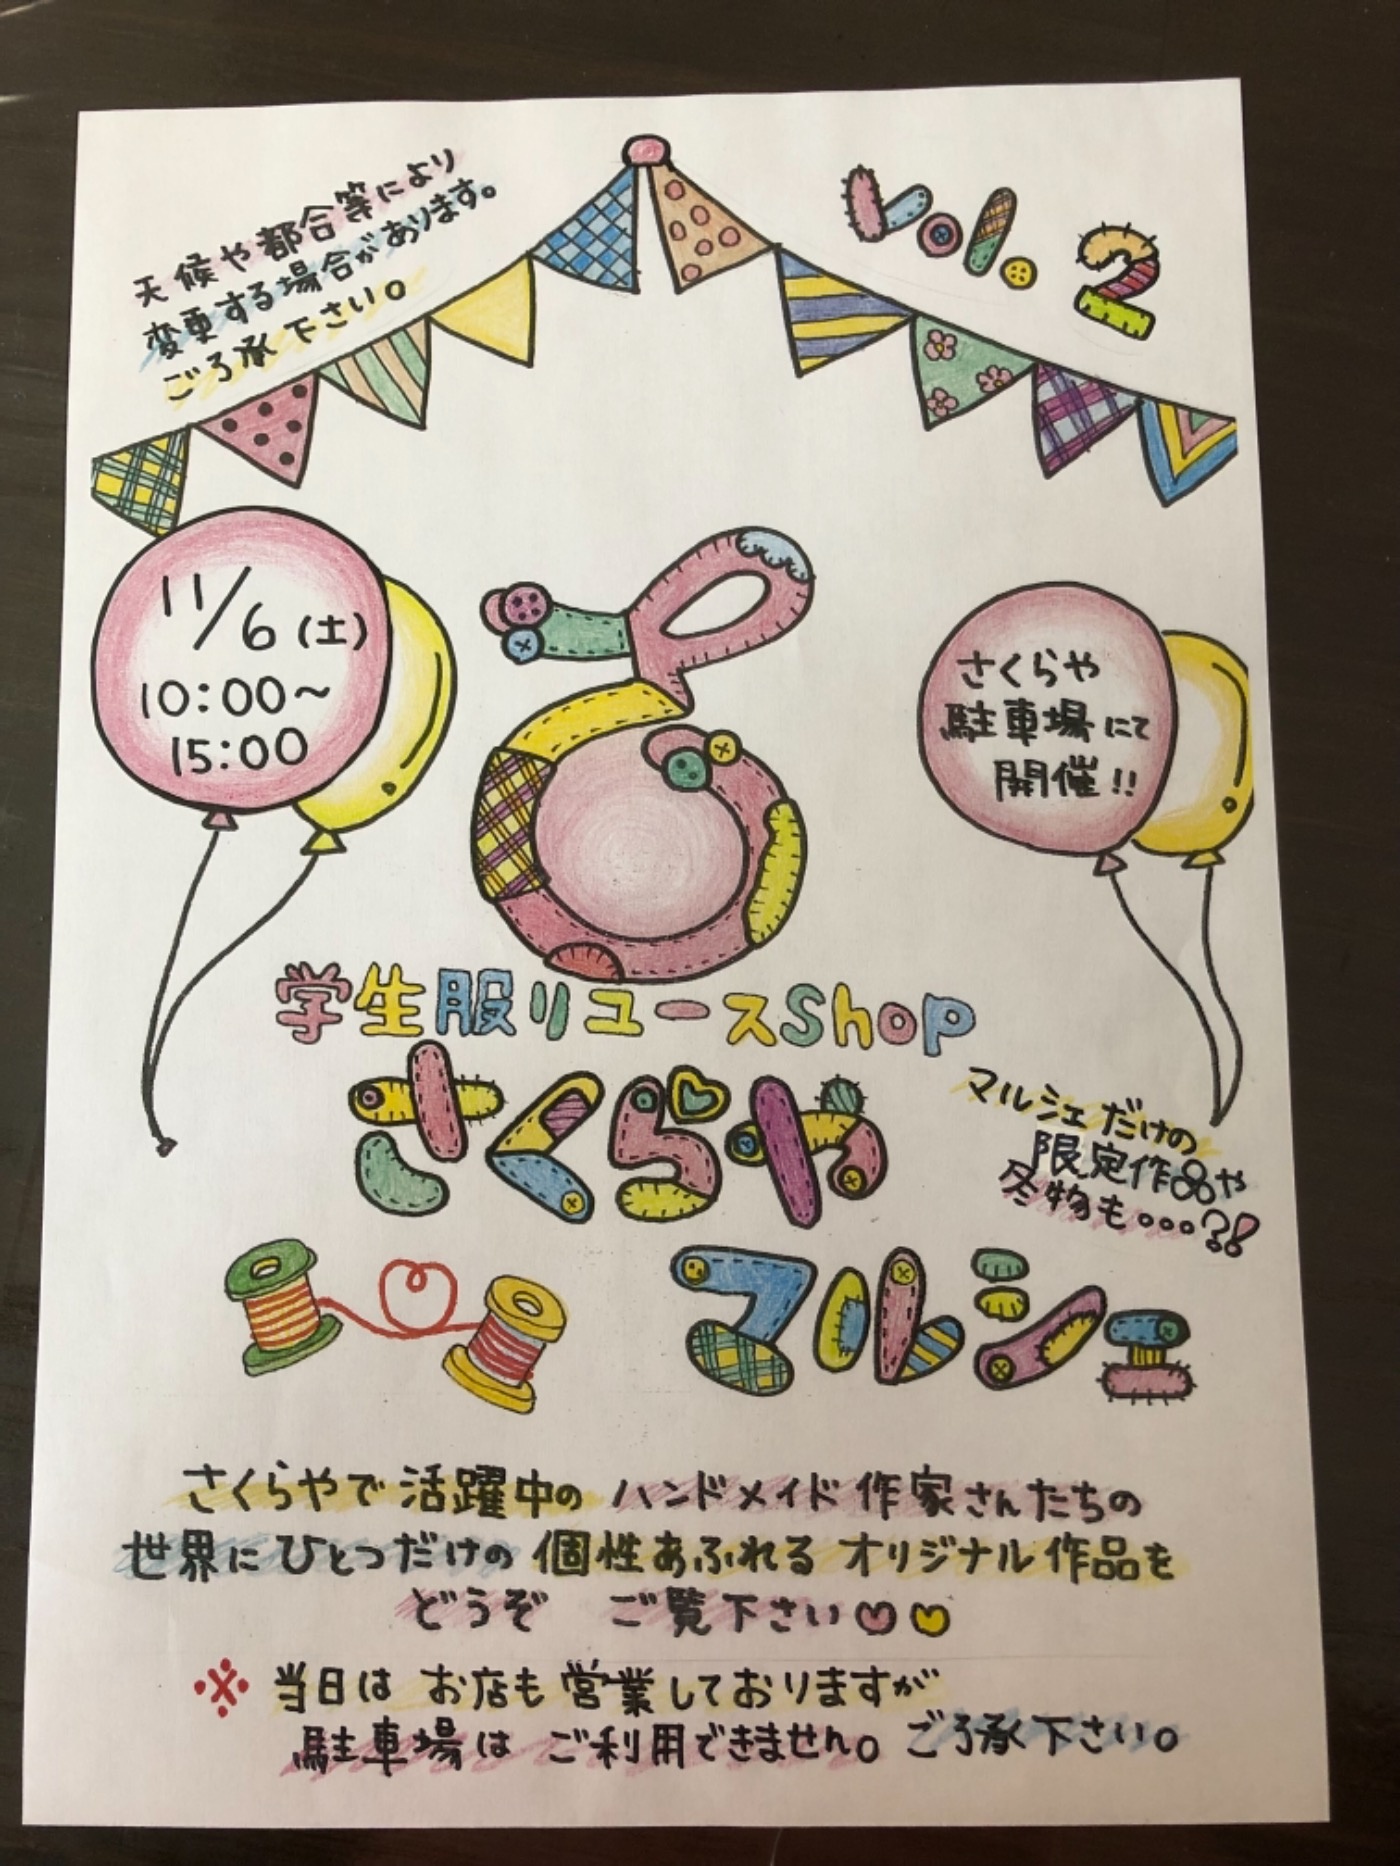 天候や都合等により
変更する場合があります。
ご了承下さい。
Vol.2
11/6(土)
10:00～
15:00
さくらや
駐車場にて
開催!!
学生服リユースShop
さくらや
マルシェだけの
限定作品や
冬物も・・・?!
マルシェ
さくらやで活躍中のハンドメイド作家さんたちの
世界にひとつだけの個性あふれるオリジナル作品を
どうぞ ご覧下さい
※当日はお店も営業しておりますが
駐車場はご利用できません。ご了承下さい。